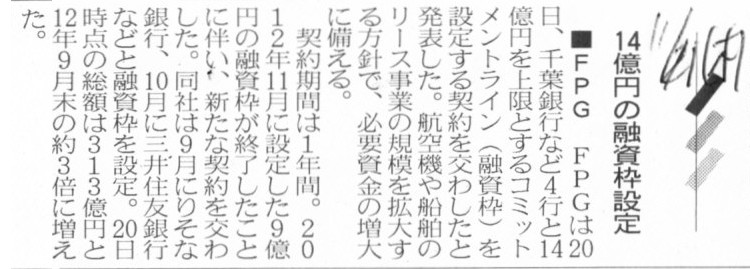 14億円の融資枠設定
■FPG　FPGは20
日、千葉銀行など4行と14
億円を上限とするコミット
メントライン（融資枠）を
設定する契約を交わしたと
発表した。航空機や船舶の
リース事業の規模を拡大す
る方針で、必要資金の増大
に備える。
　契約期間は1年間。20
12年11月に設定した9億
円の融資枠が終了したこと
に伴い、新たな契約を交わ
した。同社は9月にりそな
銀行、10月に三井住友銀行
などと融資枠を設定。20日
時点の総額は313億円と
12年9月末の約3倍に増え
た。